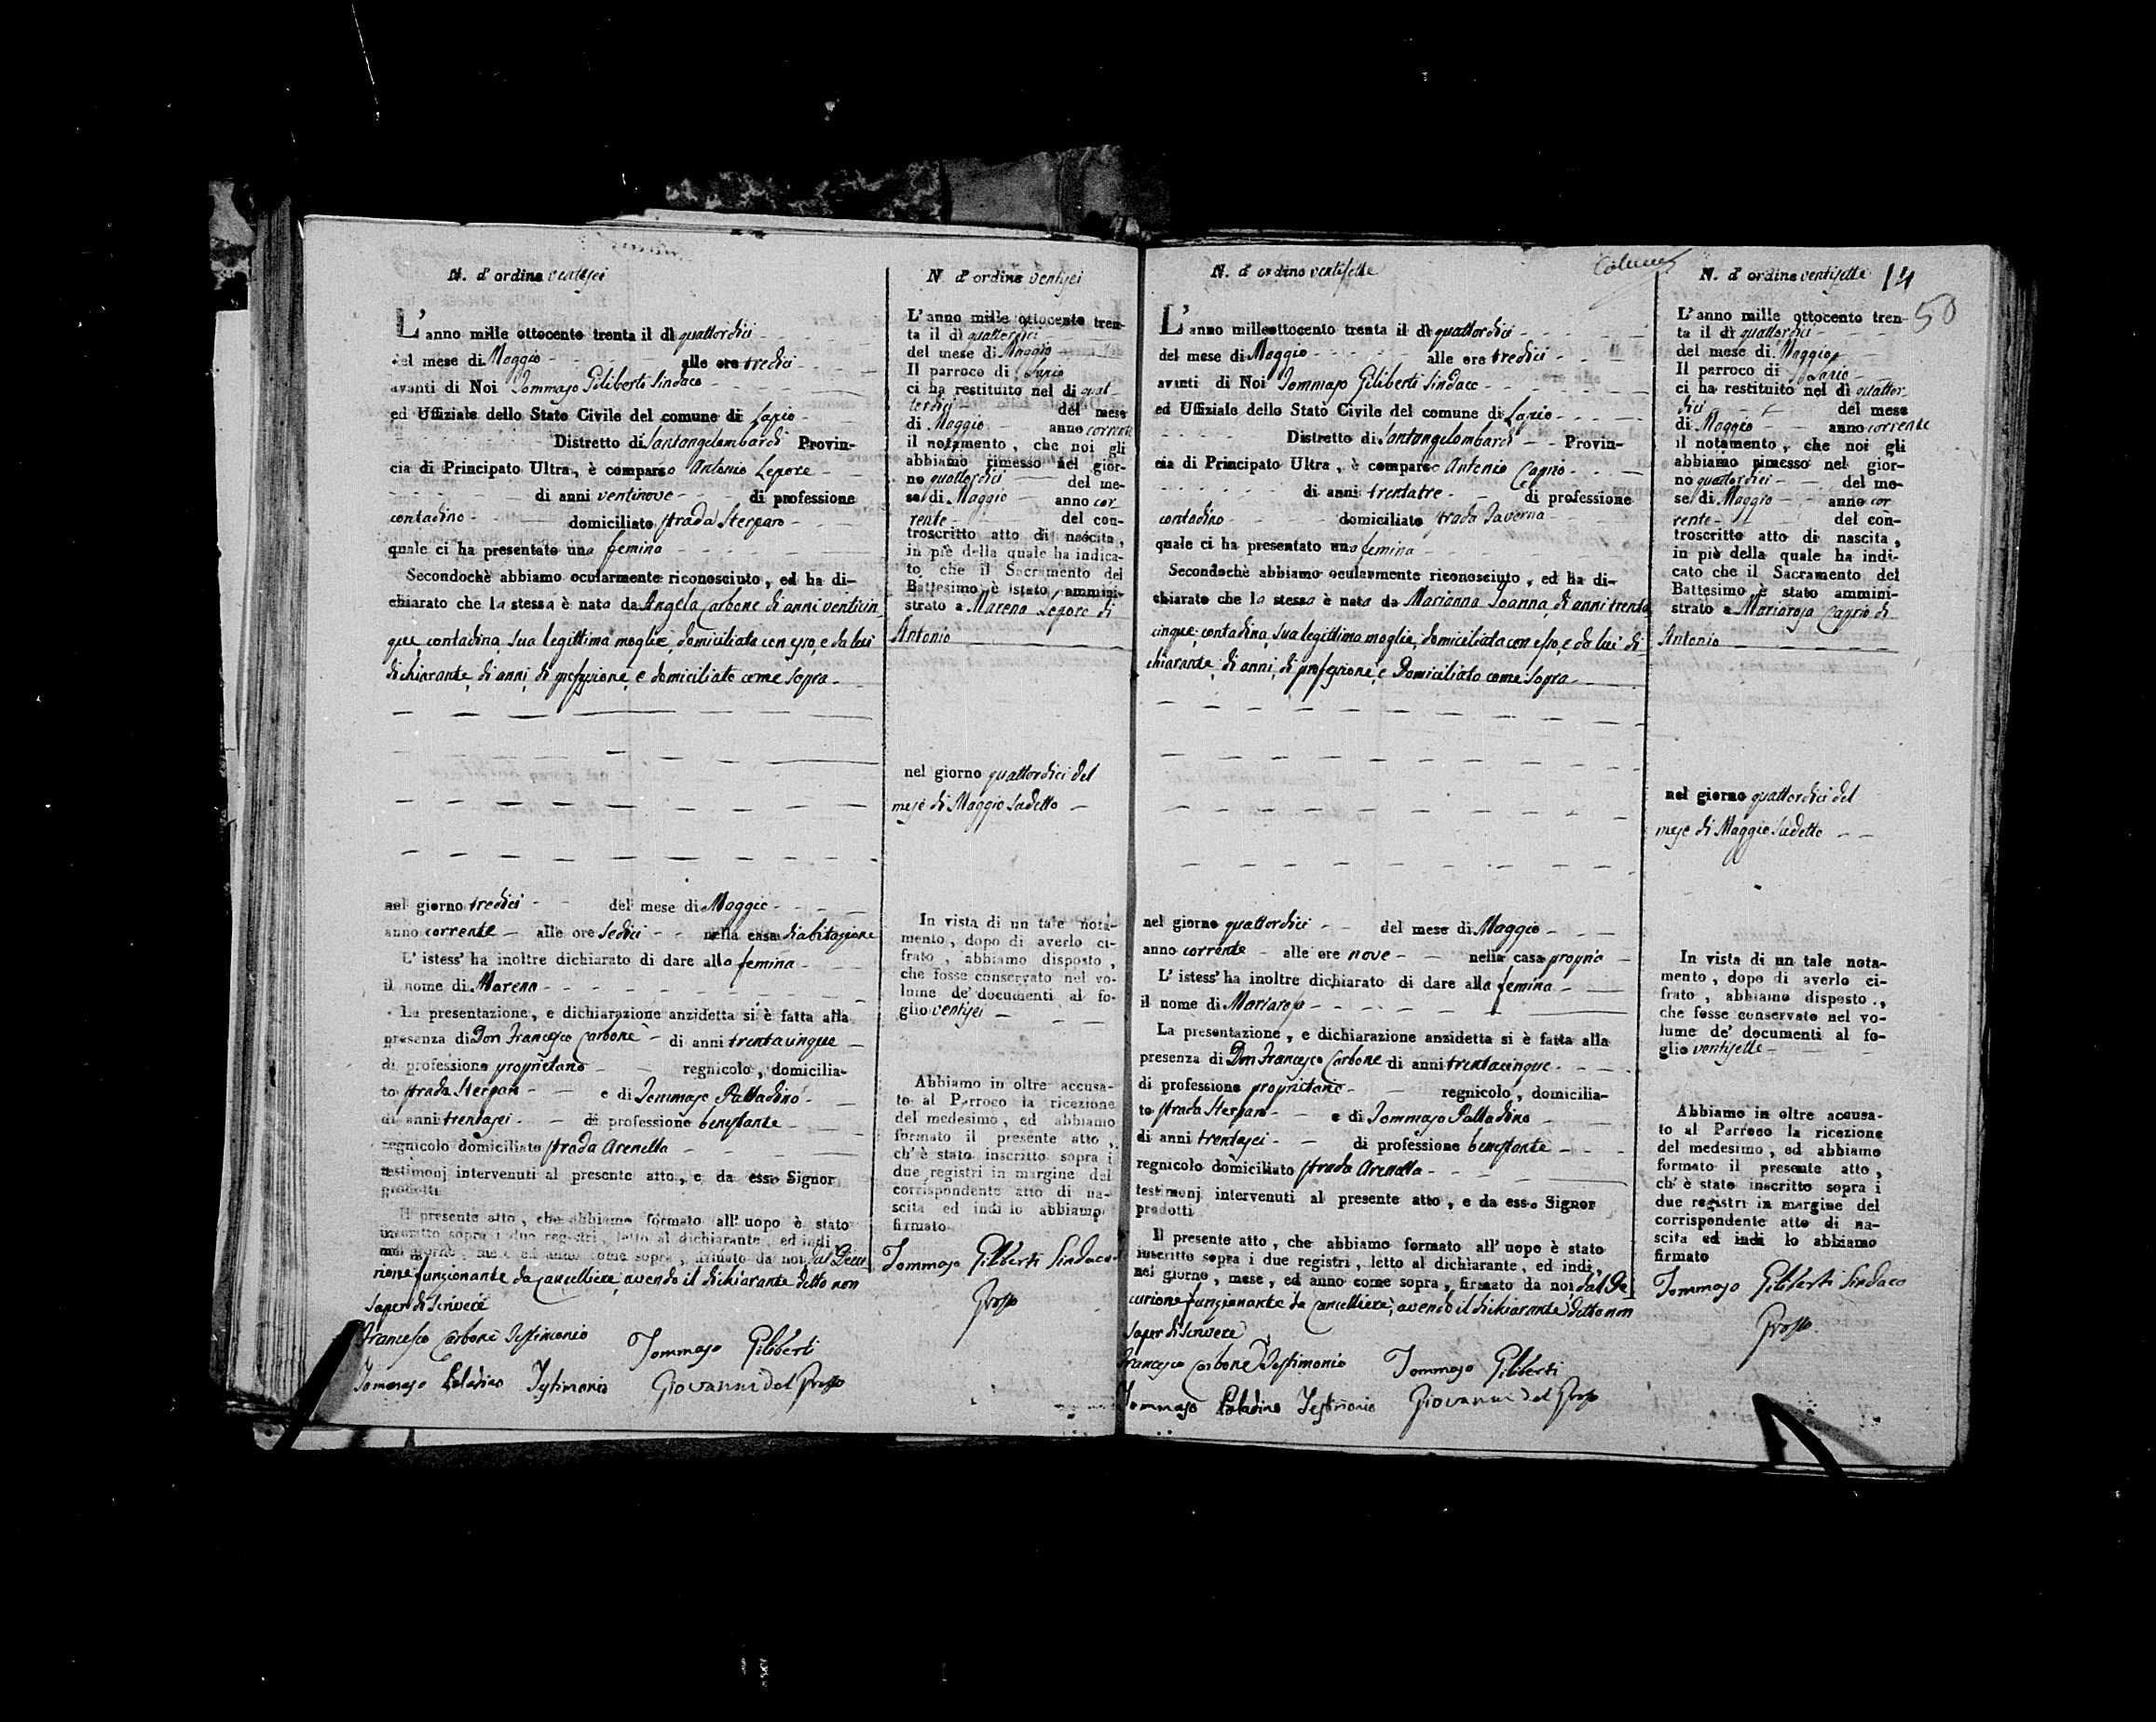 N. d'ordine ventisei
L'anno mille ottocento trenta il dì quattordici
del mese di Maggio alle ore tredici
avanti di Noi Tommaso Giliberti Sindaco
ed Uffiziale dello Stato Civile del comune di Lapio
Distretto di Santangelombardi Provin-
cia di Principato Ultra, è comparso Antonio Lepore
di anni ventinove di professione
contadino domiciliato strada Sterparo
quale ci ha presentato una femina
Secondochè abbiamo ocularmente riconosciuto, ed ha di-
chiarato che la stessa è nata da Angela Carbone di anni venticin
que, contadina, sua legittima moglie, domiciliata con esso, e da lui
dichiarante, di anni, di professione, e domiciliato come sopra
nel giorno tredici del mese di Maggio
anno corrente alle ore sedici nella casa di abitazione
L'istess' ha inoltre dichiarato di dare alla femina
il nome di Marena
La presentazione, e dichiarazione anzidetta si è fatta alla
presenza di Don Francesco Carbone di anni trentacinque
di professione proprietario regnicolo, domicilia-
to strada Sterparo e di Tommaso Palladino
di anni trentasei di professione benestante
regnicolo domiciliato strada Arenella
testimonj intervenuti al presente atto, e da esso Signor
prodotti
Il presente atto, che abbiamo formato all' uopo è stato
inscritto sopra i due registri, letto al dichiarante, ed indi
nel giorno, mese, ed anno come sopra, firmato da noi dal Decu
rione funzionante da Cancelliere, avendo il dichiarante detto non
saper di scrivere
Francesco Carbone Testimonio Tommaso Giliberti
Tommaso Paladino Testimonio Giovanni del Grosso
N. d'ordine ventisei
L'anno mille ottocento tren-
ta il dì quattordici
del mese di Maggio
Il parroco di Lapio
ci ha restituito nel dì quat-
tordici del mese
di Maggio anno corrente
il notamento, che noi gli
abbiamo rimesso nel gior-
no quattordici del me-
se di Maggio anno cor
rente del con-
troscritto atto di nascita,
in piè della quale ha indica-
to che il Sacramento del
Battesimo è stato ammini-
strato a Marena Lepore di
Antonio
nel giorno quattordici del
mese di Maggio sudetto
In vista di un tale nota-
mento, dopo di averlo ci-
frato, abbiamo disposto,
che fosse conservato nel vo-
lume de' documenti al fo-
glio ventisei
Abbiamo in oltre accusa-
to al Parroco la ricezione
del medesimo, ed abbiamo
formato il presente atto,
ch'è stato inscritto sopra i
due registri in margine del
corrispondente atto di na-
scita ed indi lo abbiamo
firmato
Tommaso Giliberti Sindaco
Grosso
N. d'ordine ventisette
L'anno milleottocento trenta il dì quattordici
del mese di Maggio alle ore tredici
avanti di Noi Tommaso Giliberti Sindaco
ed Uffiziale dello Stato Civile del comune di Lapio
Distretto di Santangelombardi Provin-
cia di Principato Ultra, è comparso Antonio Caprio
di anni trentatre di professione
contadino domiciliato strada Taverna
quale ci ha presentato una femina
Secondochè abbiamo ocularmente riconosciuto, ed ha di-
chiarato che la stessa è nata da Marianna Ioanna, di anni trenta
cinque, contadina, sua legittima moglie, domiciliata con esso, e da lui di
chiarante, di anni, di professione, e Domiciliato come sopra
nel giorno quattordici del mese di Maggio
anno corrente alle ore nove nella casa propria
L'istess' ha inoltre dichiarato di dare alla femina
il nome di Mariarosa
La presentazione, e dichiarazione anzidetta si è fatta alla
presenza di Don Francesco Carbone di anni trentacinque
di professione proprietario regnicolo, domicilia-
to strada Sterparo e di Tommaso Palladino
di anni trentasei di professione benestante
regnicolo domiciliato strada Arenella
testimonj intervenuti al presente atto, e da esso Signor
prodotti
Il presente atto, che abbiamo formato all' uopo è stato
inscritto sopra i due registri, letto al dichiarante, ed indi,
nel giorno, mese, ed anno come sopra, firmato da noi dal De
curione funzionante da Cancelliere, avendo il dichiarante detto non
saper di scrivere
Francesco Carbone Testimonio Tommaso Giliberti
Tommaso Paladino Testimonio Giovanni del Grosso
N. d'ordine ventisette 14
50
L'anno mille ottocento tren-
ta il dì quattordici
del mese di Maggio
Il parroco di Lapio
ci ha restituito nel dì quattor-
dici del mese
di Maggio anno corrente
il notamento, che noi gli
abbiamo rimesso nel gior-
no quattordici del me-
se di Maggio anno cor
rente del con-
troscritto atto di nascita,
in piè della quale ha indi-
cato che il Sacramento del
Battesimo è stato ammini-
strato a Mariarosa Caprio di
Antonio
nel giorno quattordici del
mese di Maggio sudetto
In vista di un tale nota-
mento, dopo di averlo ci-
frato, abbiamo disposto,
che fosse conservato nel vo-
lume de' documenti al fo-
glio ventisette
Abbiamo in oltre accusa-
to al Parroco la ricezione
del medesimo, ed abbiamo
formato il presente atto,
ch'è stato inscritto sopra i
due registri in margine del
corrispondente atto di na-
scita ed indi lo abbiamo
firmato
Tommaso Giliberti Sindaco
Grosso